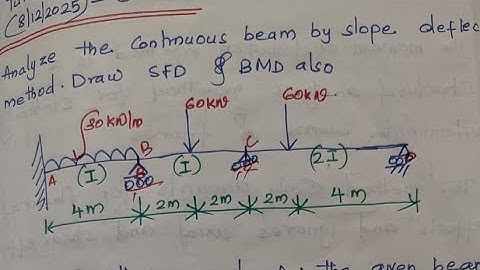 (8/12/2025)
Analyze the continuous beam by slope deflec
method. Draw SFD & BMD also
30KN/m 60KN 60KN
A B C
(I) (I) (2I)
4m 2m 2m 2m 4m
the given bea